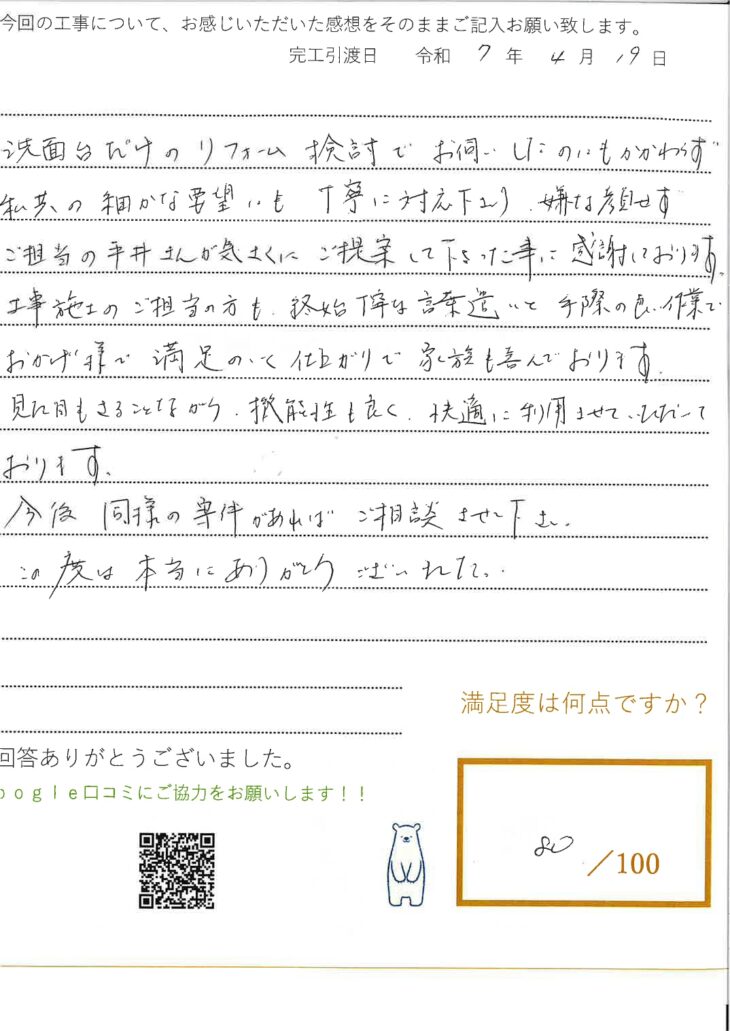 今回の工事について、お感じいただいた感想をそのままご記入お願い致します。
完工引渡日 令和 7 年 4 月 19 日
洗面台だけのリフォーム検討でお伺いしたのにもかかわらず
私共の細かな要望にも丁寧に対応下さり、嫌な顔せず
ご担当の平井さんが気さくにご提案して下さった事に感謝しております。
工事施工のご担当の方も、終始丁寧な言葉遣いと手際の良い作業で
おかげ様で満足のいく仕上がりで家族も喜んでおります。
見た目もさることながら、機能性も良く、快適に利用させていただいて
おります。
今後同様の案件があればご相談させて下さい。
この度は本当にありがとうございました。
満足度は何点ですか？
回答ありがとうございました。
oogle口コミにご協力をお願いします！！
80 /100